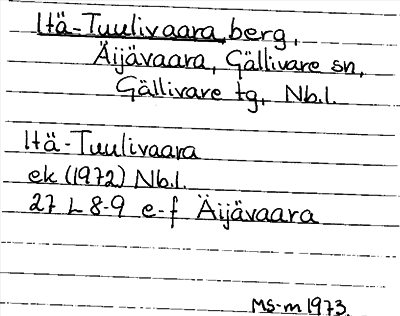 Itä-Tuulivaara, berg,
Äijävaara, Gällivare sn,
Gällivare tg, Nb.l.
Itä-Tuulivaara
ek (1972) Nb.l.
27 L 8-9 e-f Äijävaara
MS-m 1973.